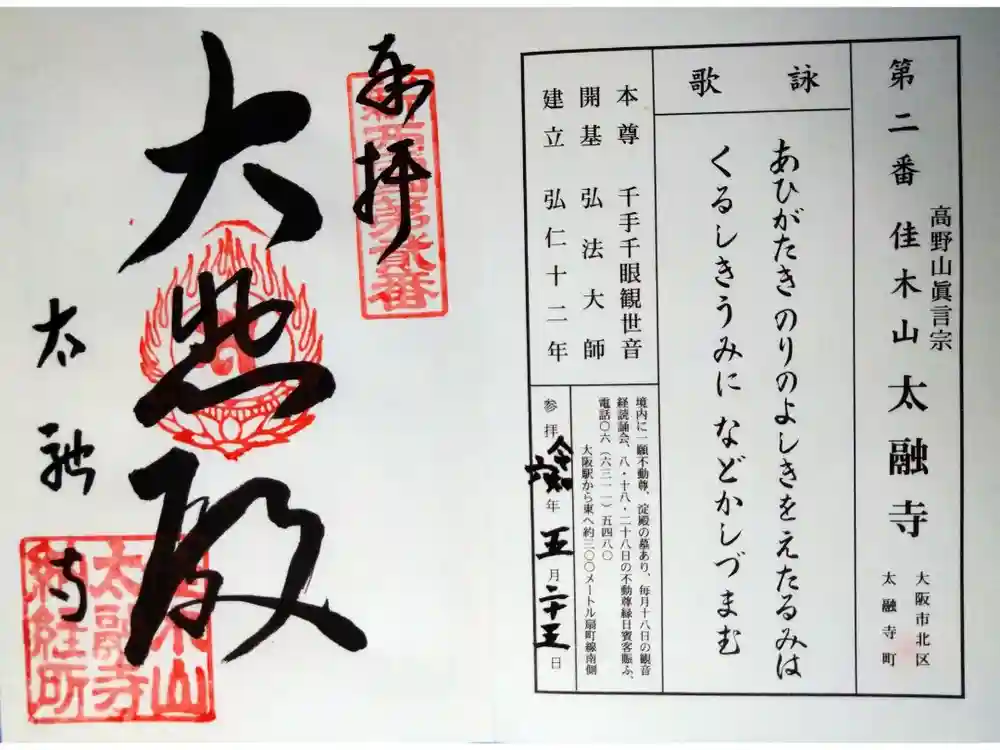 第二番 佳木山 太融寺
高野山眞言宗
大阪市北区
太融寺町
詠歌
あひがたきのりのよしきをえたるみは
くるしきうみに などかしづまむ
本尊 千手千眼観世音
開基 弘法大師
建立 弘仁十二年
境内に一願不動尊、淀殿の墓あり、毎月十八日の観音
経読誦会、八・十八・二十八日の不動尊縁日賓客賑ふ、
電話〇六(六三一一)五四八〇
大阪駅から東へ約三〇〇メートル扇町線南側
参拝 令和 年 五月二十五日
奉拝
新西国第貳番
大悲殿
太融寺
佳木山
太融寺
納経所